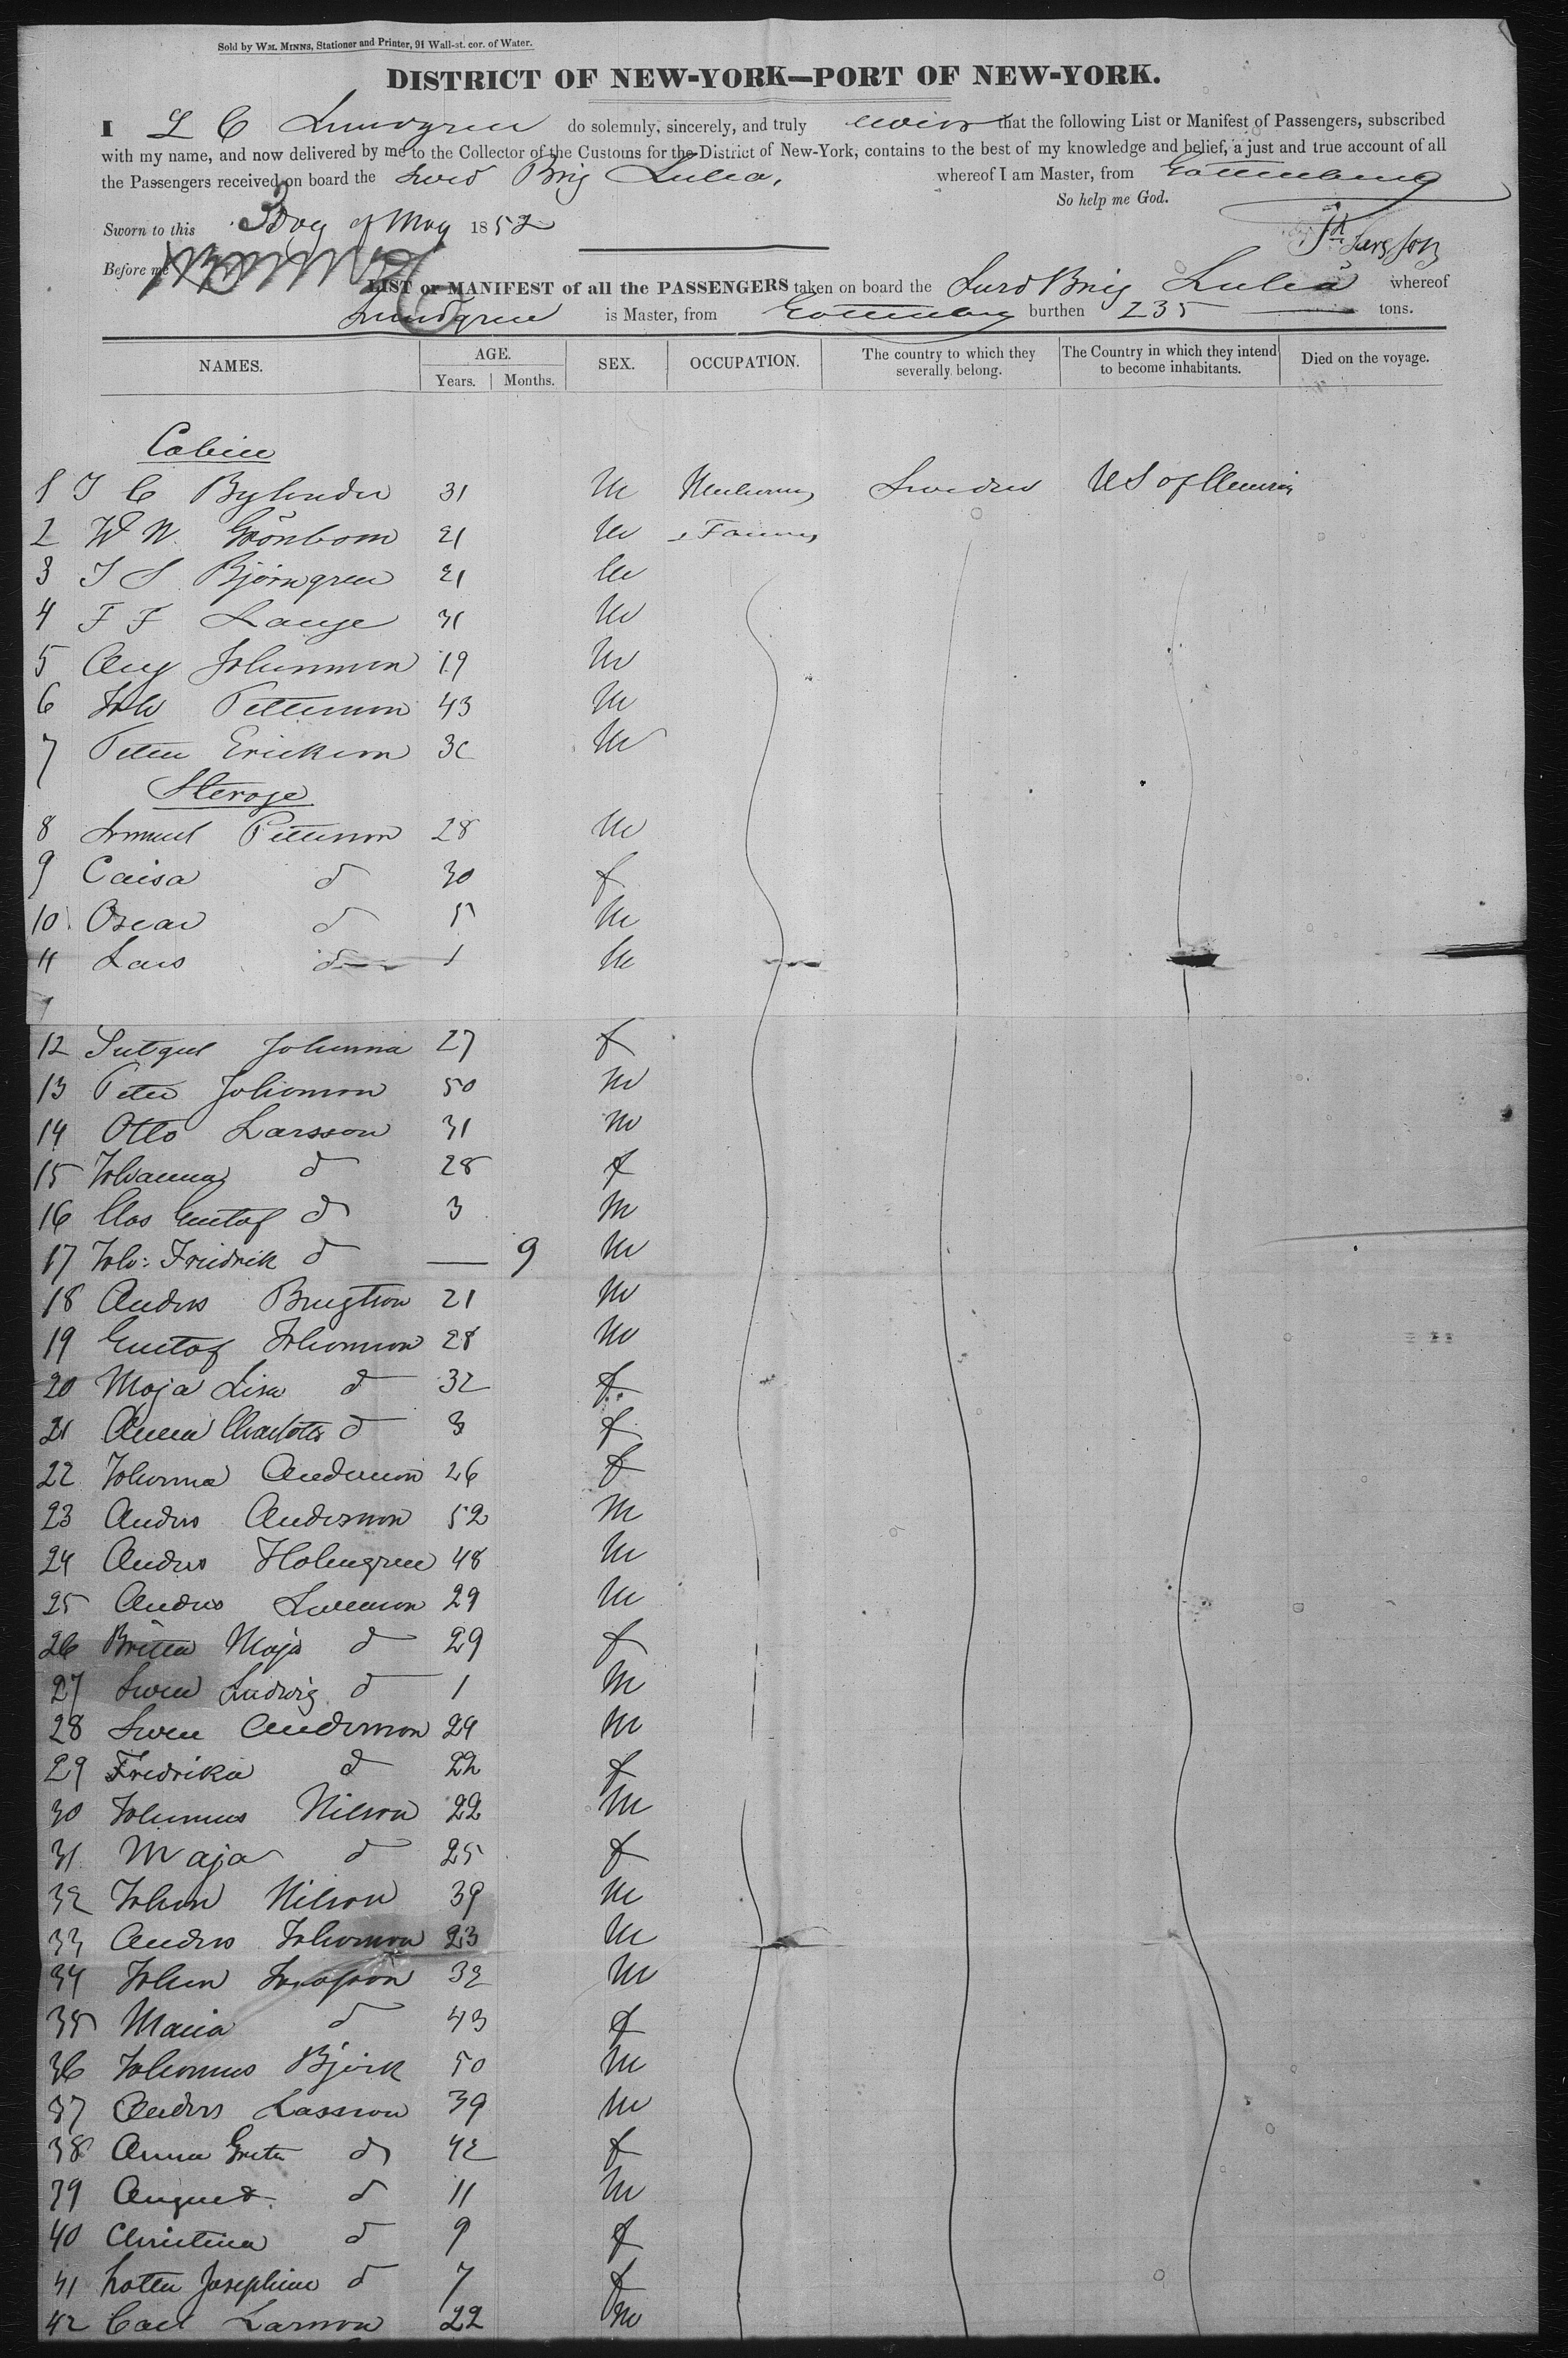 Sold by WM. MINNS, Stationer and Printer, 91 Wall-st. cor. of Water.
DISTRICT OF NEW-YORK—PORT OF NEW-YORK.
I L C Lundgren do solemnly, sincerely, and truly swear that the following List or Manifest of Passengers, subscribed
with my name, and now delivered by me to the Collector of the Customs for the District of New-York, contains to the best of my knowledge and belief, a just and true account of all
the Passengers received on board the Swed Brig Lulea, whereof I am Master, from Gottenburg
So help me God.
Sworn to this 3 Day of May 1852
Before me
LIST or MANIFEST of all the PASSENGERS taken on board the Swed Brig Luleå whereof
Lundgren is Master, from Gottenburg burthen 235 tons.
NAMES. AGE. SEX. OCCUPATION. The country to which they severally belong. The Country in which they intend to become inhabitants. Died on the voyage.
Years. Months.
Cabin
1 J C Bylander 31 M Sweden US of America
2 W W. Grönbom 21 M Farmer
3 J S Björngren 21 M
4 F F Lange 31 M
5 Aug Johanson 19 M
6 Joh Petterson 43 M
7 Peter Erickson 30 M
Sterage
8 Samuel Petterson 28 M
9 Caisa d 30 f
10 Oscar d 5 M
11 Lars d 1 M
12 Johanna 27 f
13 Peter Johanson 50 M
14 Otto Larsson 31 M
15 Johanna d 28 f
16 Clas Gustaf d 3 M
17 Joh: Fredrik d — 9 M
18 Anders Bengtson 21 M
19 Gustaf Johanson 28 M
20 Maja Lisa d 32 f
21 Anna Charlotta d 3 f
22 Johanna Anderson 26 f
23 Anders Anderson 52 M
24 Anders Holmgren 48 M
25 Anders Swenson 29 M
26 Britta Maja d 29 f
27 Swen Ludwig d 1 M
28 Swen Anderson 29 M
29 Fredrika d 22 f
30 Johannes Nilson 22 M
31 Maja d 25 f
32 Johan Nilson 39 M
33 Anders Johanson 23 M
34 Johan 32 M
35 Maria d 43 f
36 Johannes Björk 50 M
37 Anders Lassson 39 M
38 Anna Greta d 42 f
39 August d 11 M
40 Christina d 9 f
41 Lotta Josephine d 7 f
42 Carl Larson 22 M